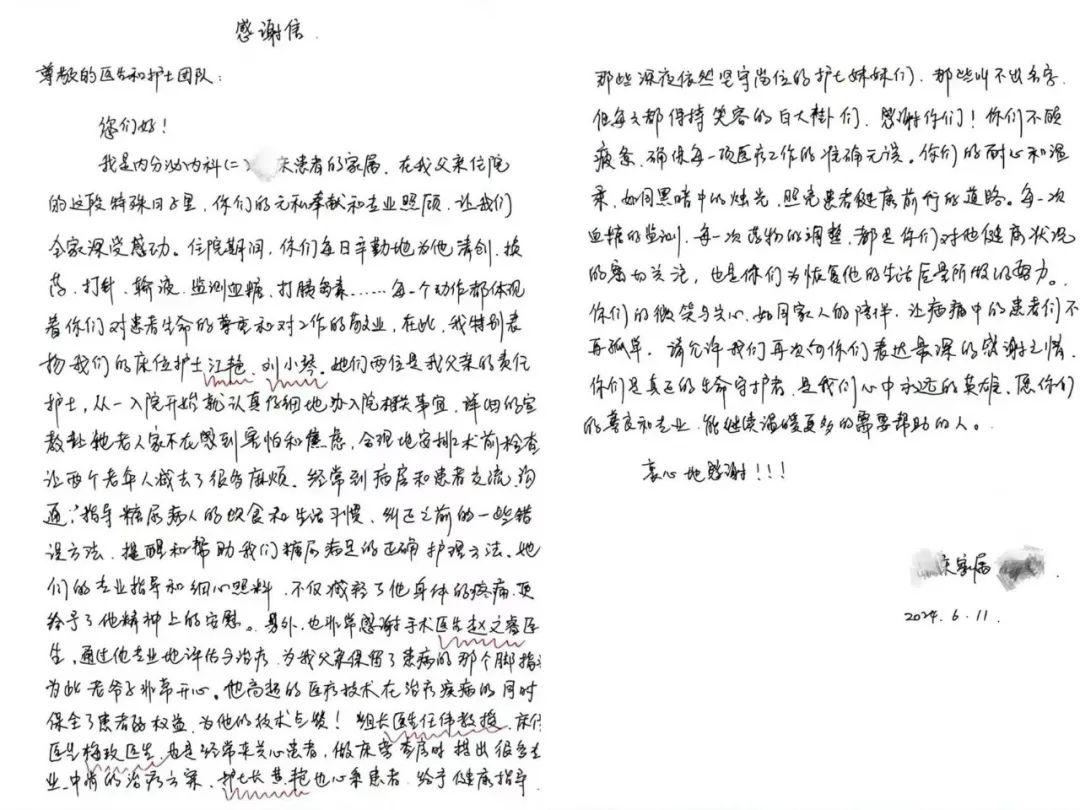 感谢信.
尊敬的医生和护士团队:
您们好!
我是内分泌内科(二) 床患者的家属.在我父亲住院
的这段特殊日子里.你们的无私奉献和专业照顾.让我们
全家深受感动.住院期间,你们每日辛勤地为他清创.换
药.打针.输液.监测血糖.打胰岛素……每一个动作都体现
着你们对患者生命的尊重和对工作的敬业,在此,我特别表
扬我们的床位护士江艳.刘小琴.她们两位是我父亲的责任
护士,从一入院开始就认真仔细地办入院相关事宜.详细的宣
教让他老人家不在感到害怕和焦虑,合理地安排术前检查
让两个老年人减去了很多麻烦.经常到病房和患者交流,沟
通,指导糖尿病人的饮食和生活习惯、纠正之前的一些错
误方法.提醒和帮助我们糖尿病足的正确护理方法.她
们的专业指导和细心照料.不仅减轻了他身体的疼痛,更
给予了他精神上的安慰。另外,也非常感谢手术医生赵文 医
生,通过他专业地评估与治疗.为我父亲保留了患病的那个脚指
为此老爷子非常开心.他高超的医疗技术在治疗疾病的同时
保全了患者的权益.为他的技术点赞!组长医生任伟教授.床位
医生 医生.也是经常来关心患者,做床旁查房时提出很多专
业.中肯的治疗方案.护士长 艳也心系患者.给予健康指导.
那些深夜依然坚守岗位的护士妹妹们,那些叫不出名字
但每天都保持笑容的白大褂们.感谢你们!你们不顾
疲惫.确保每一项医疗工作的准确无误。你们的耐心和温
柔,如同黑暗中的烛光,照亮患者健康前行的道路。每一次
血糖的监测,每一次药物的调整.都是你们对他健康状况
的密切关注,也是你们为恢复他的生活质量所做的努力。
你们的微笑与关心,如同家人的陪伴,让病痛中的患者们不
再孤单.请允许我们再次向你们表达最深的感谢之情.
你们是真正的生命守护者,是我们心中永远的英雄.愿你们
的善良和专业,能继续温暖更多的需要帮助的人。
衷心地感谢!!!
床家属
2024.6.11.